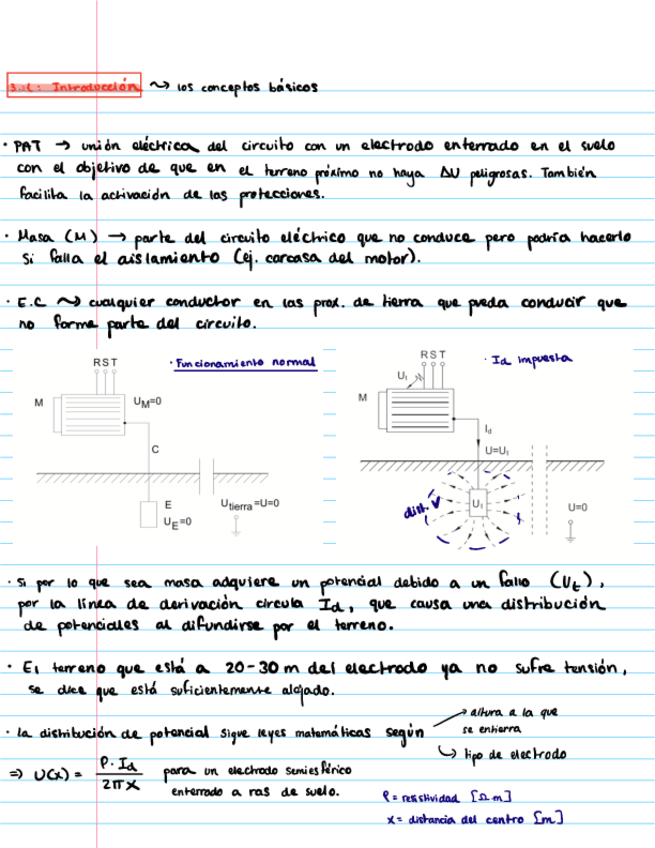 3.1: Introducción ~> los conceptos básicos
· PAT → unión eléctrica del circuito con un electrodo enterrado en el suelo
con el objetivo de que en el terreno próximo no haya ΔU peligrosas. También
facilita la activación de las protecciones.
· Masa (M) → parte del circuito eléctrico que no conduce pero podría hacerlo
si falla el aislamiento (ej. carcasa del motor).
· E.C ~> cualquier conductor en las prox. de tierra que pueda conducir que
no forme parte del circuito.
R S T
· Funcionamiento normal
M
U_M=0
C
E
U_E=0
U_tierra=U=0
R S T
· Id impuesta
U_t
M
I_d
U=U_t
dist. V
U_t
U=0
· Si por lo que sea masa adquiere un potencial debido a un fallo (U_t),
por la línea de derivación circula I_d, que causa una distribución
de potenciales al difundirse por el terreno.
· El terreno que está a 20-30 m del electrodo ya no sufre tensión,
se dice que está suficientemente alejado.
· La distribución de potencial sigue leyes matemáticas según
→ altura a la que
se entierra
↳ tipo de electrodo
⇒ U(x) = ρ · I_d / 2πx para un electrodo semiesférico
enterrado a ras de suelo.
ρ = resistividad [Ω.m]
x = distancia del centro [m]